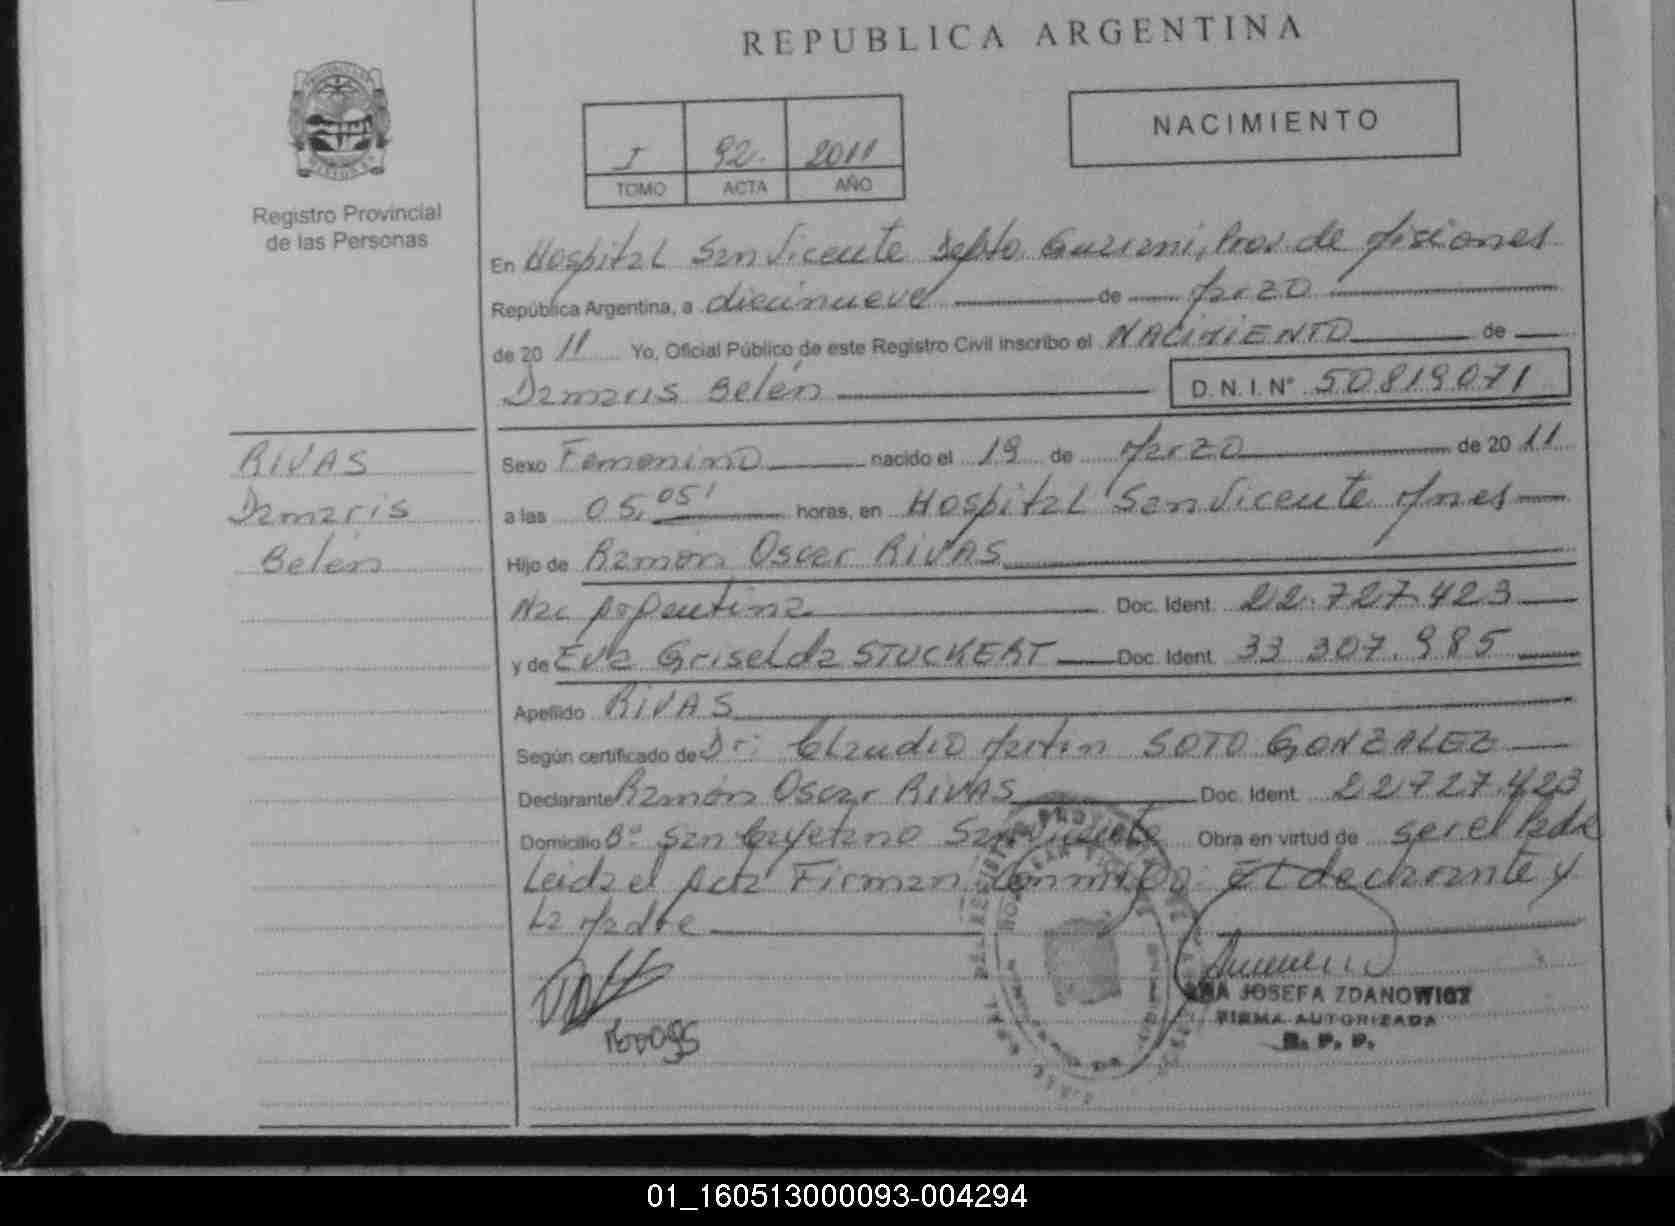 REPUBLICA ARGENTINA
NACIMIENTO
I 92. 2011
TOMO ACTA AÑO
Registro Provincial
de las Personas
En Hospital San Vicente Depto. Guarani, Prov de Misiones
República Argentina, a diecinueve de Marzo
de 20 11 Yo, Oficial Público de este Registro Civil inscribo el NACIMIENTO de
Damaris Belén D.N.I.N° 50819071
RIVAS
Damaris
Belén
Sexo Femenino nacido el 19 de Marzo de 20 11
a las 05,05' horas, en Hospital San Vicente Mnes
Hijo de Ramón Oscar RIVAS
Nac Argentina Doc. Ident. 22.727.423
y de Eva Griselda STUCKERT Doc. Ident. 33 307.985
Apellido RIVAS
Según certificado de Dr: Claudio Martin SOTO GONZALEZ
Declarante Ramón Oscar RIVAS Doc. Ident. 22727.423
Domicilio B° San Cayetano San Vicente Obra en virtud de ser el Padre
Leida el Acta Firman Conmigo El declarante y
La Madre
JOSEFA ZDANOWICZ
FIRMA AUTORIZADA
R. P. P.
01_160513000093-004294